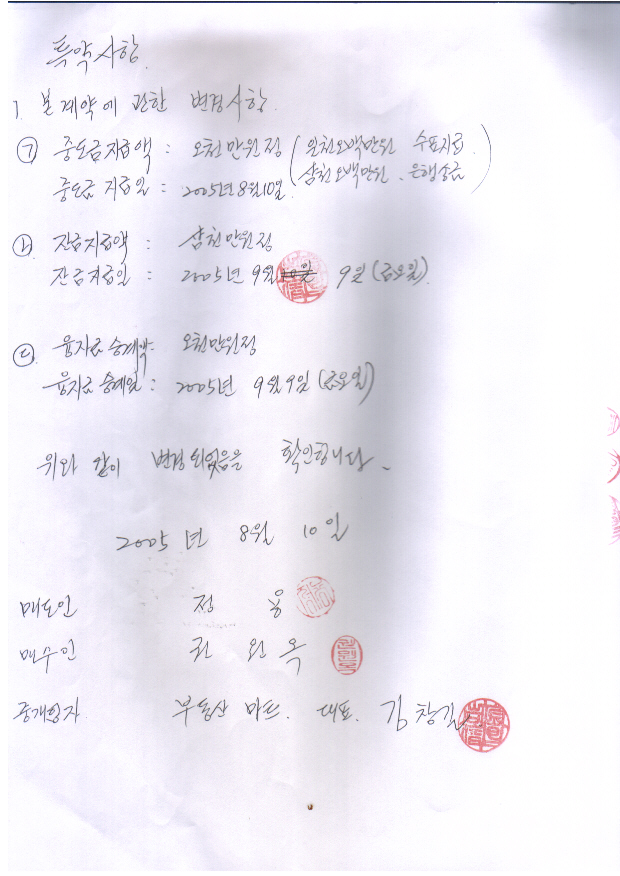 특약사항.
1. 본 계약에 관한 변경사항.
㉠ 중도금지급액 : 오천만원정 (일천오백만원 수표지급.
삼천오백만원. 은행송금)
중도금 지급일 : 2005년 8월 10일.
㉡ 잔금지급액 : 삼천만원정
잔금지급일 : 2005년 9월 9일 (금요일).
㉢ 융자금 승계액: 오천만원정
융자금 승계일 : 2005년 9월 9일 (금요일)
위와 같이 변경되었음을 확인합니다.
2005년 8월 10일
매도인 정 웅
매수인 권 원 옥
중개업자 부동산 마트. 대표. 김창길